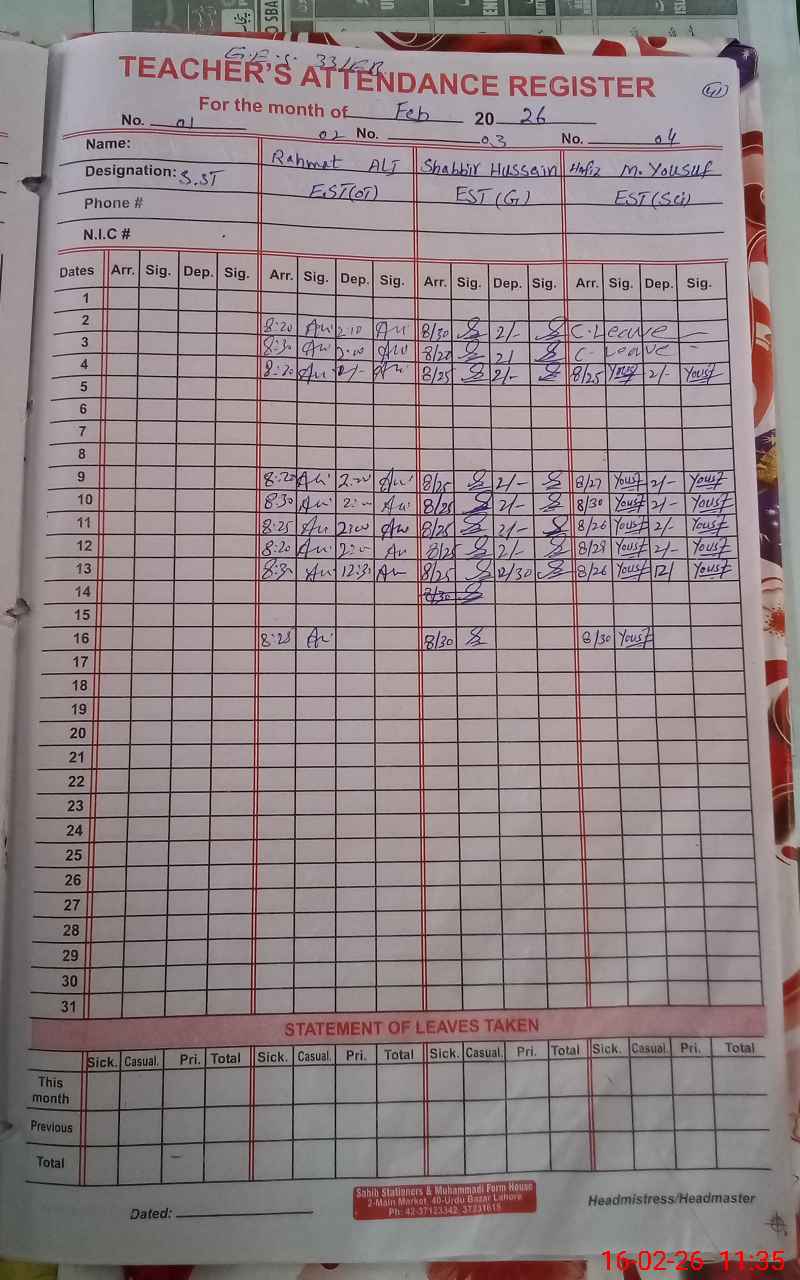 G.E.S. 33/EB
TEACHER'S ATTENDANCE REGISTER
For the month of Feb 20 26
No. 01 02 No. 03 No. 04
Name: Rahmat ALI Shabbir Hussain Hafiz M. Yousuf
Designation: S.ST EST(OT) EST(G) EST(Sci)
Phone #
N.I.C #
Dates Arr. Sig. Dep. Sig. Arr. Sig. Dep. Sig. Arr. Sig. Dep. Sig. Arr. Sig. Dep. Sig.
1
2 8:20 2:10 8/30 2/- C.Leave
3 8:30 2:00 8/20 2/ C-Leave -
4 8:20 2/- 8/25 2/- 8/25 Yousf 2/- Yousf
5
6
7
8
9 8:20 2:00 8/25 2/- 8/27 Yousf 2/- Yousf
10 8:30 2:00 8/25 2/- 8/30 Yousf 2/- Yousf
11 8:25 2:00 8/25 2/- 8/26 Yousf 2/- Yousf
12 8:20 2:00 8/25 2/- 8/28 Yousf 2/- Yousf
13 8:30 12:30 8/25 12/30 8/26 Yousf 12/ Yousf
14 8/30
15
16 8:25 8/30 8/30 Yousf
17
18
19
20
21
22
23
24
25
26
27
28
29
30
31
STATEMENT OF LEAVES TAKEN
Sick. Casual. Pri. Total Sick. Casual. Pri. Total Sick. Casual. Pri. Total Sick. Casual. Pri. Total
This month
Previous
Total
Sahib Stationers & Muhammadi Form House
2-Main Market, 40-Urdu Bazar Lahore
Ph: 42-37123342, 37231615
Dated: Headmistress/Headmaster
16-02-26 11:35